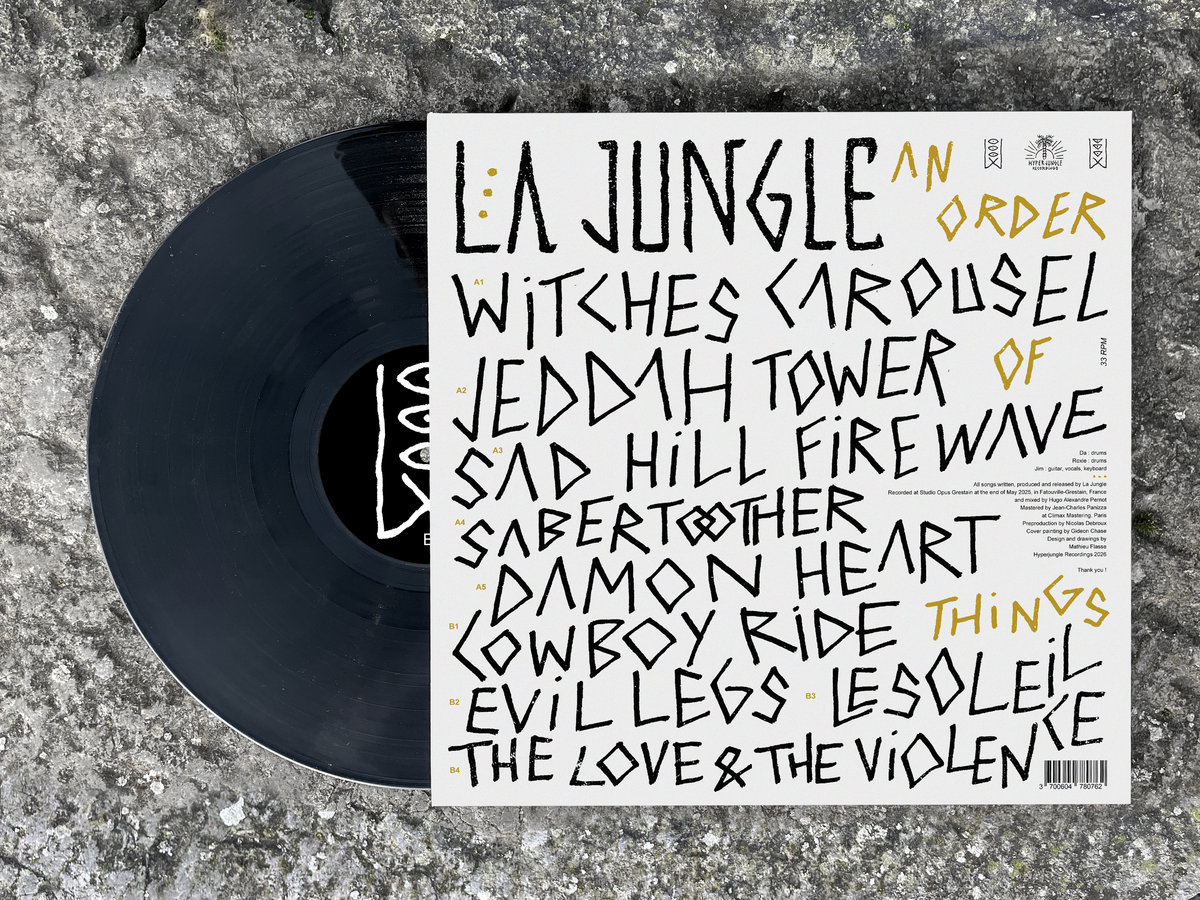 LA JUNGLE
AN ORDER
HYPERJUNGLE
RECORDINGS
A1 WiTCHES CAROUSEL
33 RPM
A2 JEDDAH TOWER
OF
A3 SAD HiLL FiRE WAVE
A4 SABERTOOTHER
A5 DAMON HEART
Da : drums
Roxie : drums
Jim : guitar, vocals, keyboard
All songs written, produced and released by La Jungle
Recorded at Studio Opus Grestain at the end of May 2025, in Fatouville-Grestain, France
and mixed by Hugo Alexandre Pernot
Mastered by Jean-Charles Panizza
at Climax Mastering, Paris
Preproduction by Nicolas Debroux
Cover painting by Gideon Chase
Design and drawings by
Mathieu Flasse
Hyperjungle Recordings 2026
Thank you !
B1 COWBOY RiDE
THiNGS
B2 EViL LEGS
B3 LE SOLEiL
B4 THE LOVE & THE ViOLENCE
3 700604 780762